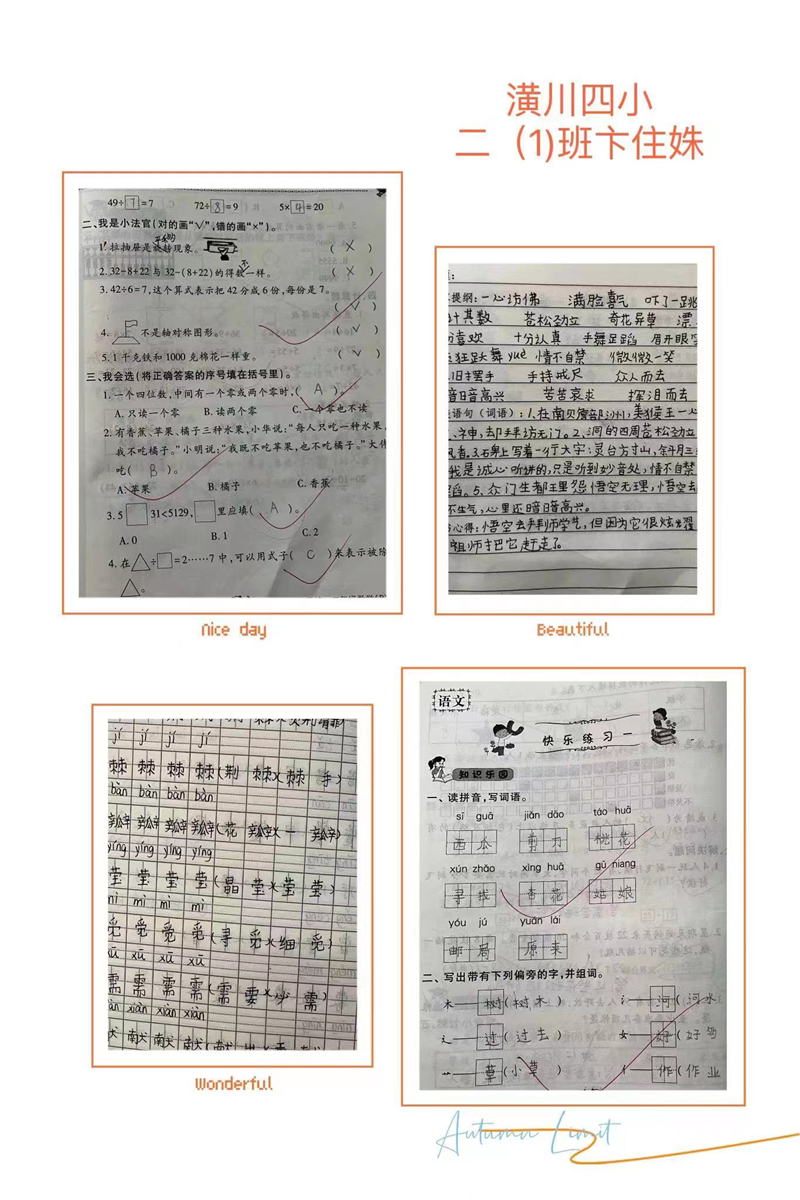 潢川四小
二（1)班卞住姝
49÷7=7 72÷8=9 5×4=20
二、我是小法官(对的画“√”,错的画“×”)。
1. 拉抽屉是旋转现象。 (×)
2. 32-8+22与32-(8+22)的得数一样。 (×)
3. 42÷6=7,这个算式表示把42分成6份,每份是7。
(√)
4. 不是轴对称图形。 (√)
5. 1千克铁和1000克棉花一样重。 (√)
三、我会选(将正确答案的序号填在括号里)。
1. 一个四位数,中间有一个零或两个零时,( A )
A. 只读一个零 B. 读两个零 C. 一个零也不读
2. 有香蕉、苹果、橘子三种水果,小华说:“每人只吃一种水果,
我不吃橘子。”小明说:“我既不吃苹果,也不吃橘子。”大伟
吃( B )。
A. 苹果 B. 橘子 C. 香蕉
3. 5□31<5129,□里应填( A )。
A. 0 B. 1 C. 2
4. 在△÷□=2……7中,可以用式子( C )来表示被除
Nice day
提纲:一心访佛 满脸喜气 吓了一跳
计其数 苍松劲立 奇花异草 漂
喜欢 十分认真 手舞足蹈 眉开眼
狂跃舞 yuè 情不自禁 微微一笑
旧摆手 手持戒尺 众人而去
暗暗高兴 苦苦哀求 挥泪而去
语句(词语):1.在南贝
却拜访无门。2.洞的四周苍松劲立
3.石碑上写着一行大字:灵台方寸山,
我是诚心听讲的,只是听到妙音处,情不自禁
5.众门生都
不生气,心里还暗暗高兴。
心得:悟空去拜师学艺,但因为它很炫耀
祖师把它赶走了。
Beautiful
jí jí jí jí
棘 棘 棘 棘(荆棘)(棘手)
bàn bàn bàn bàn
瓣 瓣 瓣 瓣(花瓣)(一瓣)
yíng yíng yíng yíng
莹 莹 莹 莹(晶莹)(莹莹)
mì mì mì mì
觅 觅 觅 觅(寻觅)(细觅)
xū xū xū xū
需 需 需 需(需要)(少需)
xiàn xiàn xiàn
献 献 献
Wonderful
语文
快乐练习一
知识乐园
一、读拼音,写词语。
sī guā jiǎn dāo táo huā
西瓜 剪刀 桃花
xún zhǎo xìng huā gū niang
寻找 杏花 姑娘
yóu jú yuán lái
邮局 原来
二、写出带有下列偏旁的字,并组词。
木——树(树木) 氵——河(河水
辶——过(过去) 女——好(好
艹——草(小草) 亻——作(作业
Autumn Limit